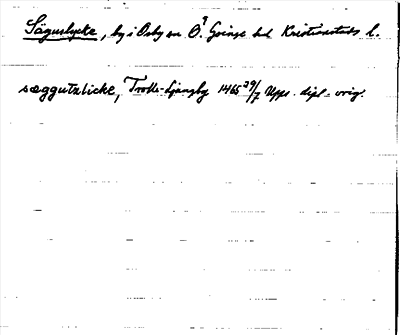 Säguslycke, by i Osby sn Ö. Göinge hd Kristianstads l.
sæggutzlicke, Trolle-Ljungby 1465 29/7 Upps. dipl. orig.